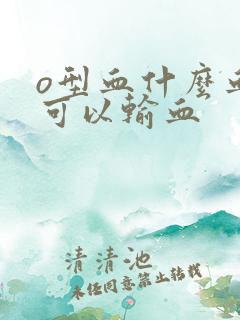 o型血什麼血
可以輸血
清清池
未任同意禁止转载